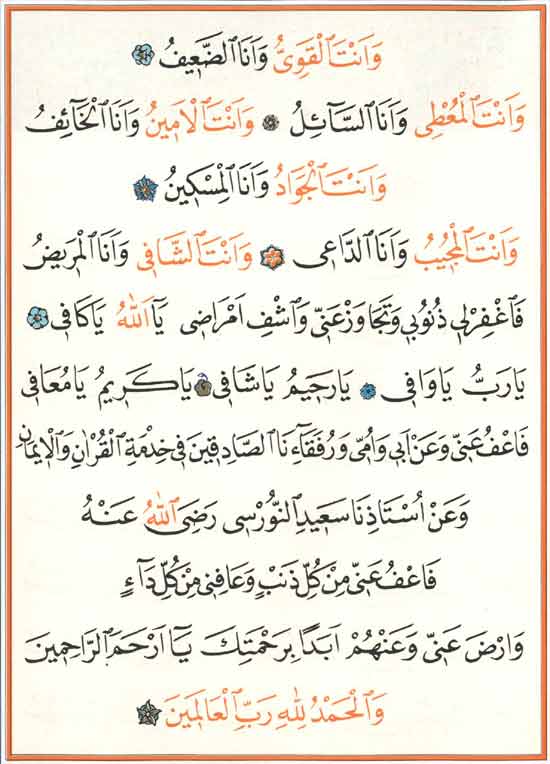 وَاَنْتَ الْقَوِىُّ وَاَنَا الضَّعِيفُ
وَاَنْتَ الْمُعْطِى وَاَنَا السَّآئِلُ وَاَنْتَ الْاَمِينُ وَاَنَا الْخَآئِفُ
وَاَنْتَ الْجَوَادُ وَاَنَا الْمِسْكِينُ
وَاَنْتَ الْمُجِيبُ وَاَنَا الدَّاعِى وَاَنْتَ الشَّافِى وَاَنَا الْمَرِيضُ
فَاغْفِرْلِى ذُنُوبِى وَتَجَاوَزْ عَنِّى وَاشْفِ اَمْرَاضِى يَآ اَللّٰهُ يَاكَافِى
يَارَبُّ يَاوَافِى يَارَحِيمُ يَاشَافِى يَاكَرِيمُ يَامُعَافِى
فَاعْفُ عَنِّى وَعَنْ اَبِى وَاُمِّى وَرُفَقَآءِنَا الصَّادِقِينَ فِى خِدْمَةِ الْقُرْاٰنِ وَالْاِيمَانِ
وَعَنْ اُسْتَاذِنَا سَعِيدِ النُّورْسِى رَضِىَ اللّٰهُ عَنْهُ
فَاعْفُ عَنِّى مِنْ كُلِّ ذَنْبٍ وَعَافِنِى مِنْ كُلِّ دَآءٍ
وَارْضَ عَنِّى وَعَنْهُمْ اَبَدًا بِرَحْمَتِكَ يَآ اَرْحَمَ الرَّاحِمِينَ
وَالْحَمْدُ لِلّٰهِ رَبِّ الْعَالَمِينَ